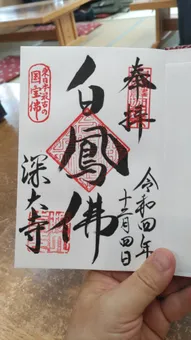 奉拝
白鳳佛
令和四年
十二月四日
東日本最古の
国宝佛
深大寺